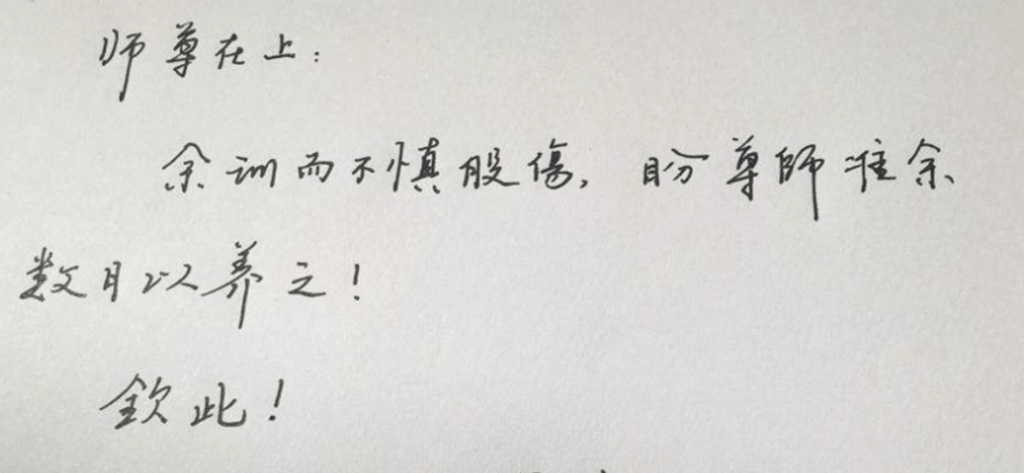 师尊在上：
余训而不慎股傷，盼尊師准余
数月以养之！
欽此！